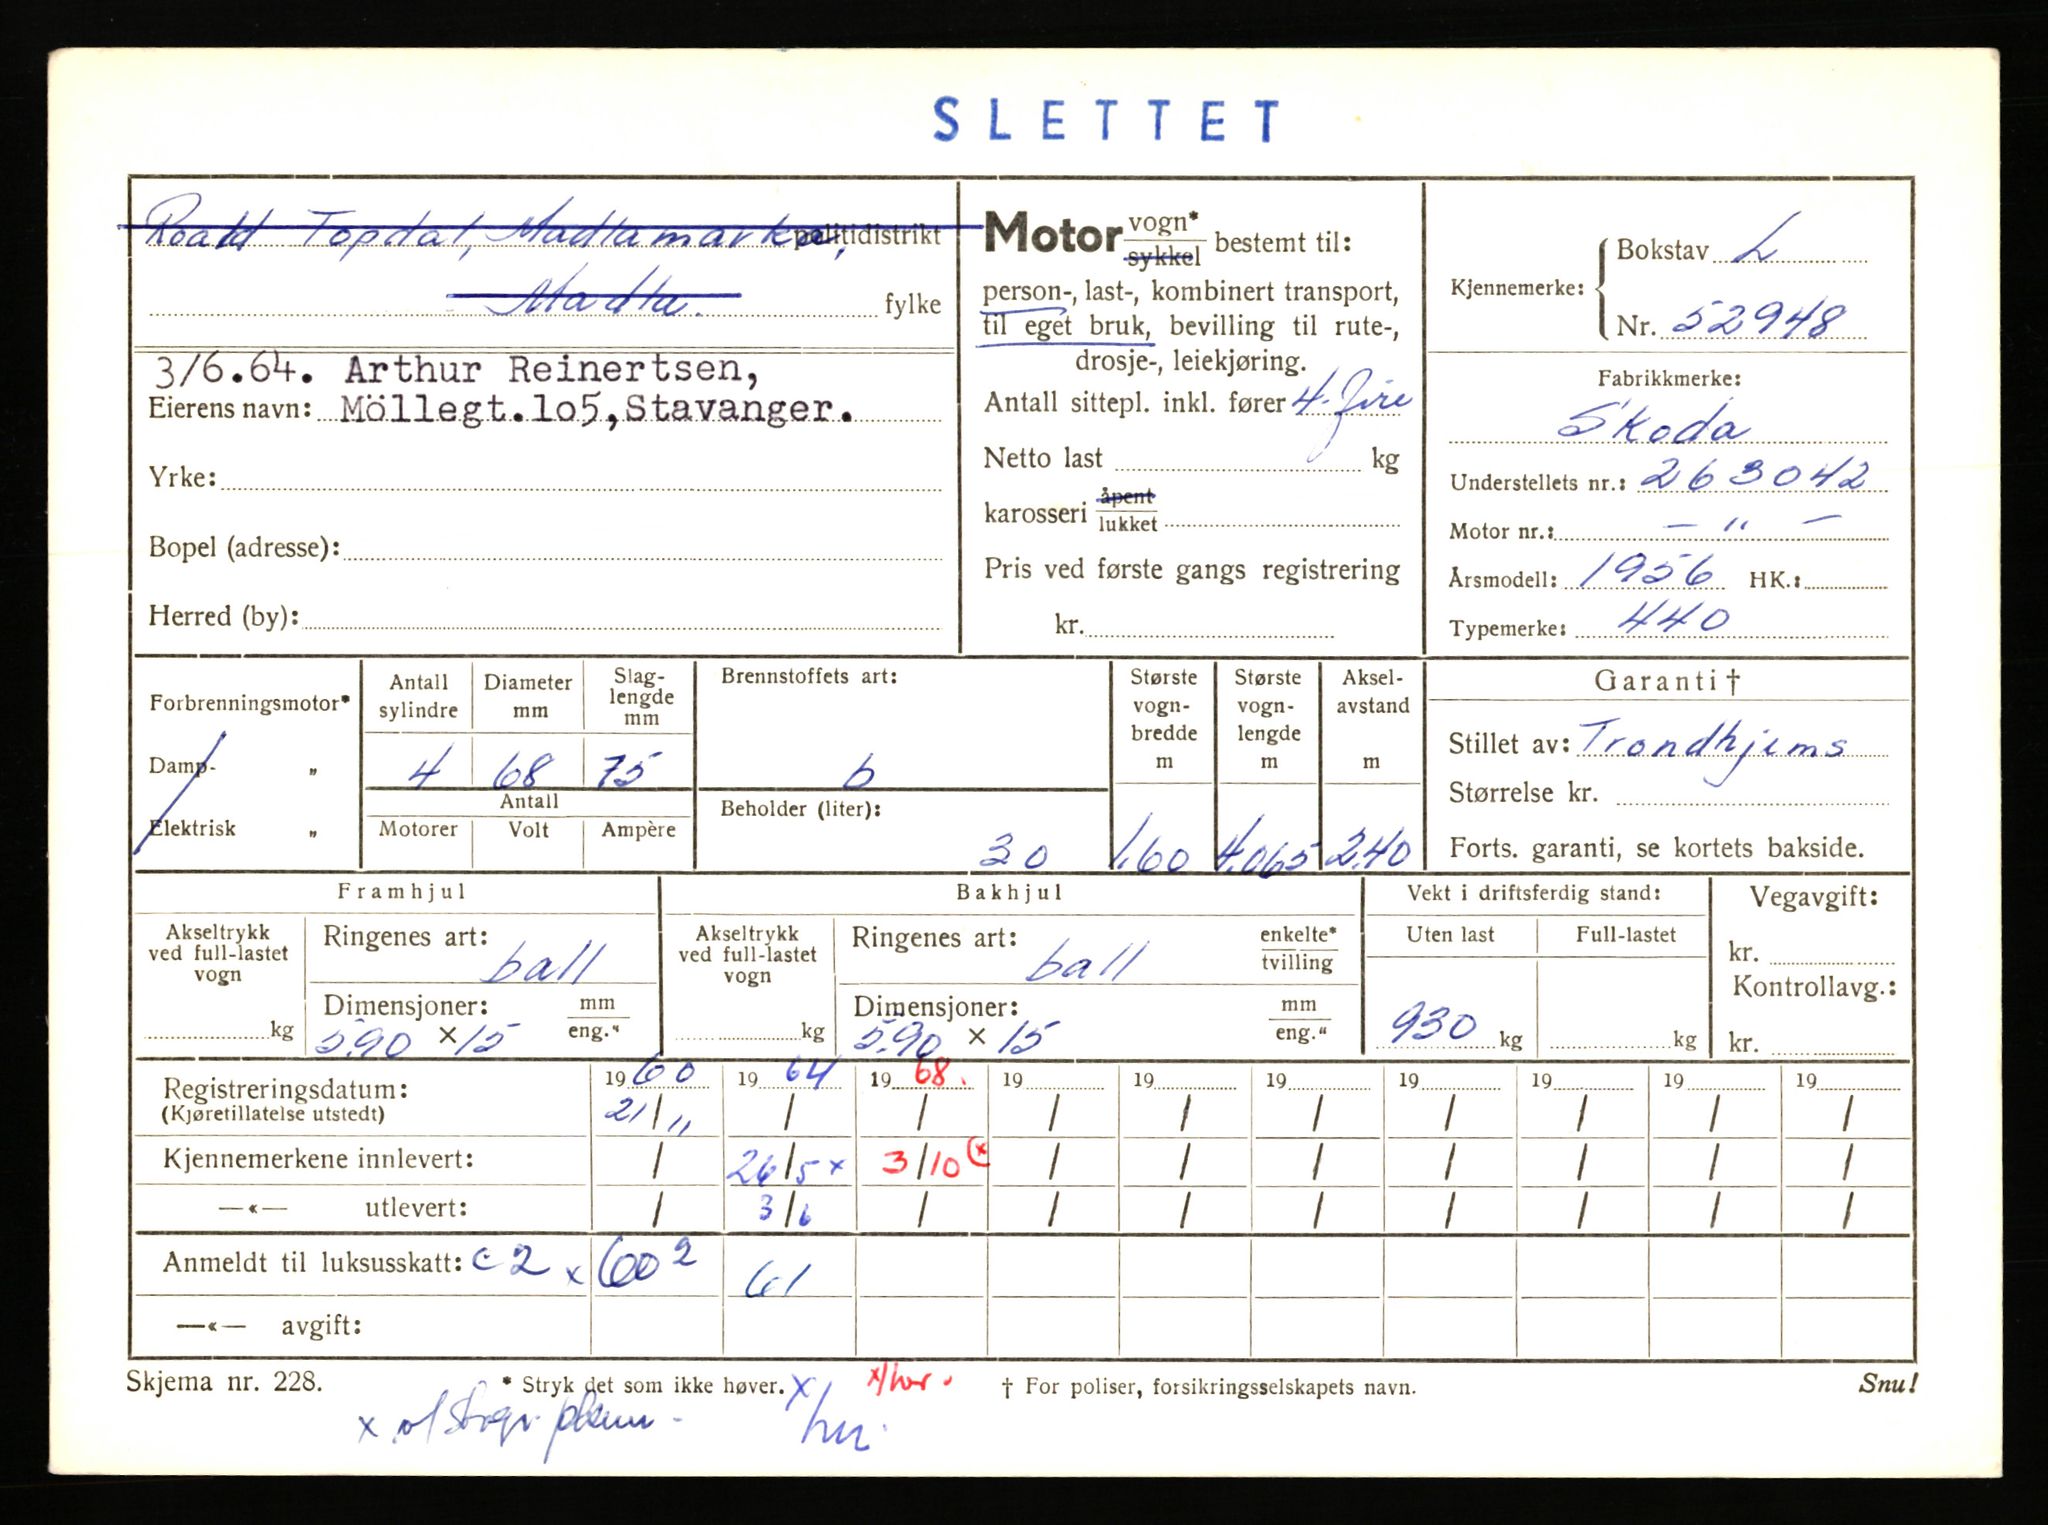 SLETTET
Roald Topdal, Madlamarka, politidistrikt
Madla. fylke
3/6.64. Arthur Reinertsen,
Eierens navn: Möllegt.lo5,Stavanger.
Yrke:
Bopel (adresse):
Herred (by):
Motor vogn* sykkel bestemt til:
person-, last-, kombinert transport,
til eget bruk, bevilling til rute-,
drosje-, leiekjøring.
Antall sittepl. inkl. fører 4. fire
Netto last kg
karosseri åpent lukket
Pris ved første gangs registrering
kr.
Kjennemerke: Bokstav L
Nr. 52948
Fabrikkmerke:
Skoda
Understellets nr.: 263042
Motor nr.: — " —
Årsmodell: 1956 HK.:
Typemerke: 440
Forbrenningsmotor*
Damp- „
Elektrisk „
Antall sylindre
Diameter mm
Slag-lengde mm
4 68 75
Antall
Motorer Volt Ampère
Brennstoffets art:
b
Beholder (liter):
30
Største vogn-bredde m
1.60
Største vogn-lengde m
4.065
Aksel-avstand m
2.40
Garanti †
Stillet av: Trondhjems
Størrelse kr.
Forts. garanti, se kortets bakside.
Framhjul
Akseltrykk ved full-lastet vogn
kg
Ringenes art:
ball
Dimensjoner: mm eng."
5.90 x 15
Bakhjul
Akseltrykk ved full-lastet vogn
kg
Ringenes art: enkelte* tvilling
ball
Dimensjoner: mm eng."
5.90 x 15
Vekt i driftsferdig stand:
Uten last Full-lastet
930 kg kg
Vegavgift:
kr.
Kontrollavg.:
kr.
Registreringsdatum: 1960 1964 1968. 19 19 19 19 19 19 19
(Kjøretillatelse utstedt) 21/11 / / / / / / / / /
Kjennemerkene innlevert: / 26/5 x 3/10 (x / / / / / / /
—«— utlevert: / 3/6 / / / / / / / /
Anmeldt til luksusskatt: c 2 x 60 2 61
—«— avgift:
Skjema nr. 228. * Stryk det som ikke høver. † For poliser, forsikringsselskapets navn. Snu!